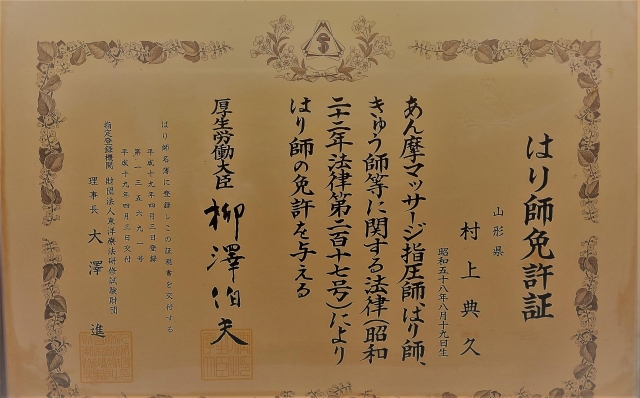 はり師免許証
山形県
村上典久
昭和五十八年八月十九日生
あん摩マッサージ指圧師、はり師、
きゅう師等に関する法律(昭和
二十二年法律第二百十七号)により
はり師の免許を与える
厚生労働大臣 柳澤伯夫
はり師名簿に登録しこの証明書を交付する
平成十九年四月三日登録
第一三五六九一号
平成十九年四月三日交付
指定登録機関 財団法人東洋療法研修試験財団
理事長 大澤進